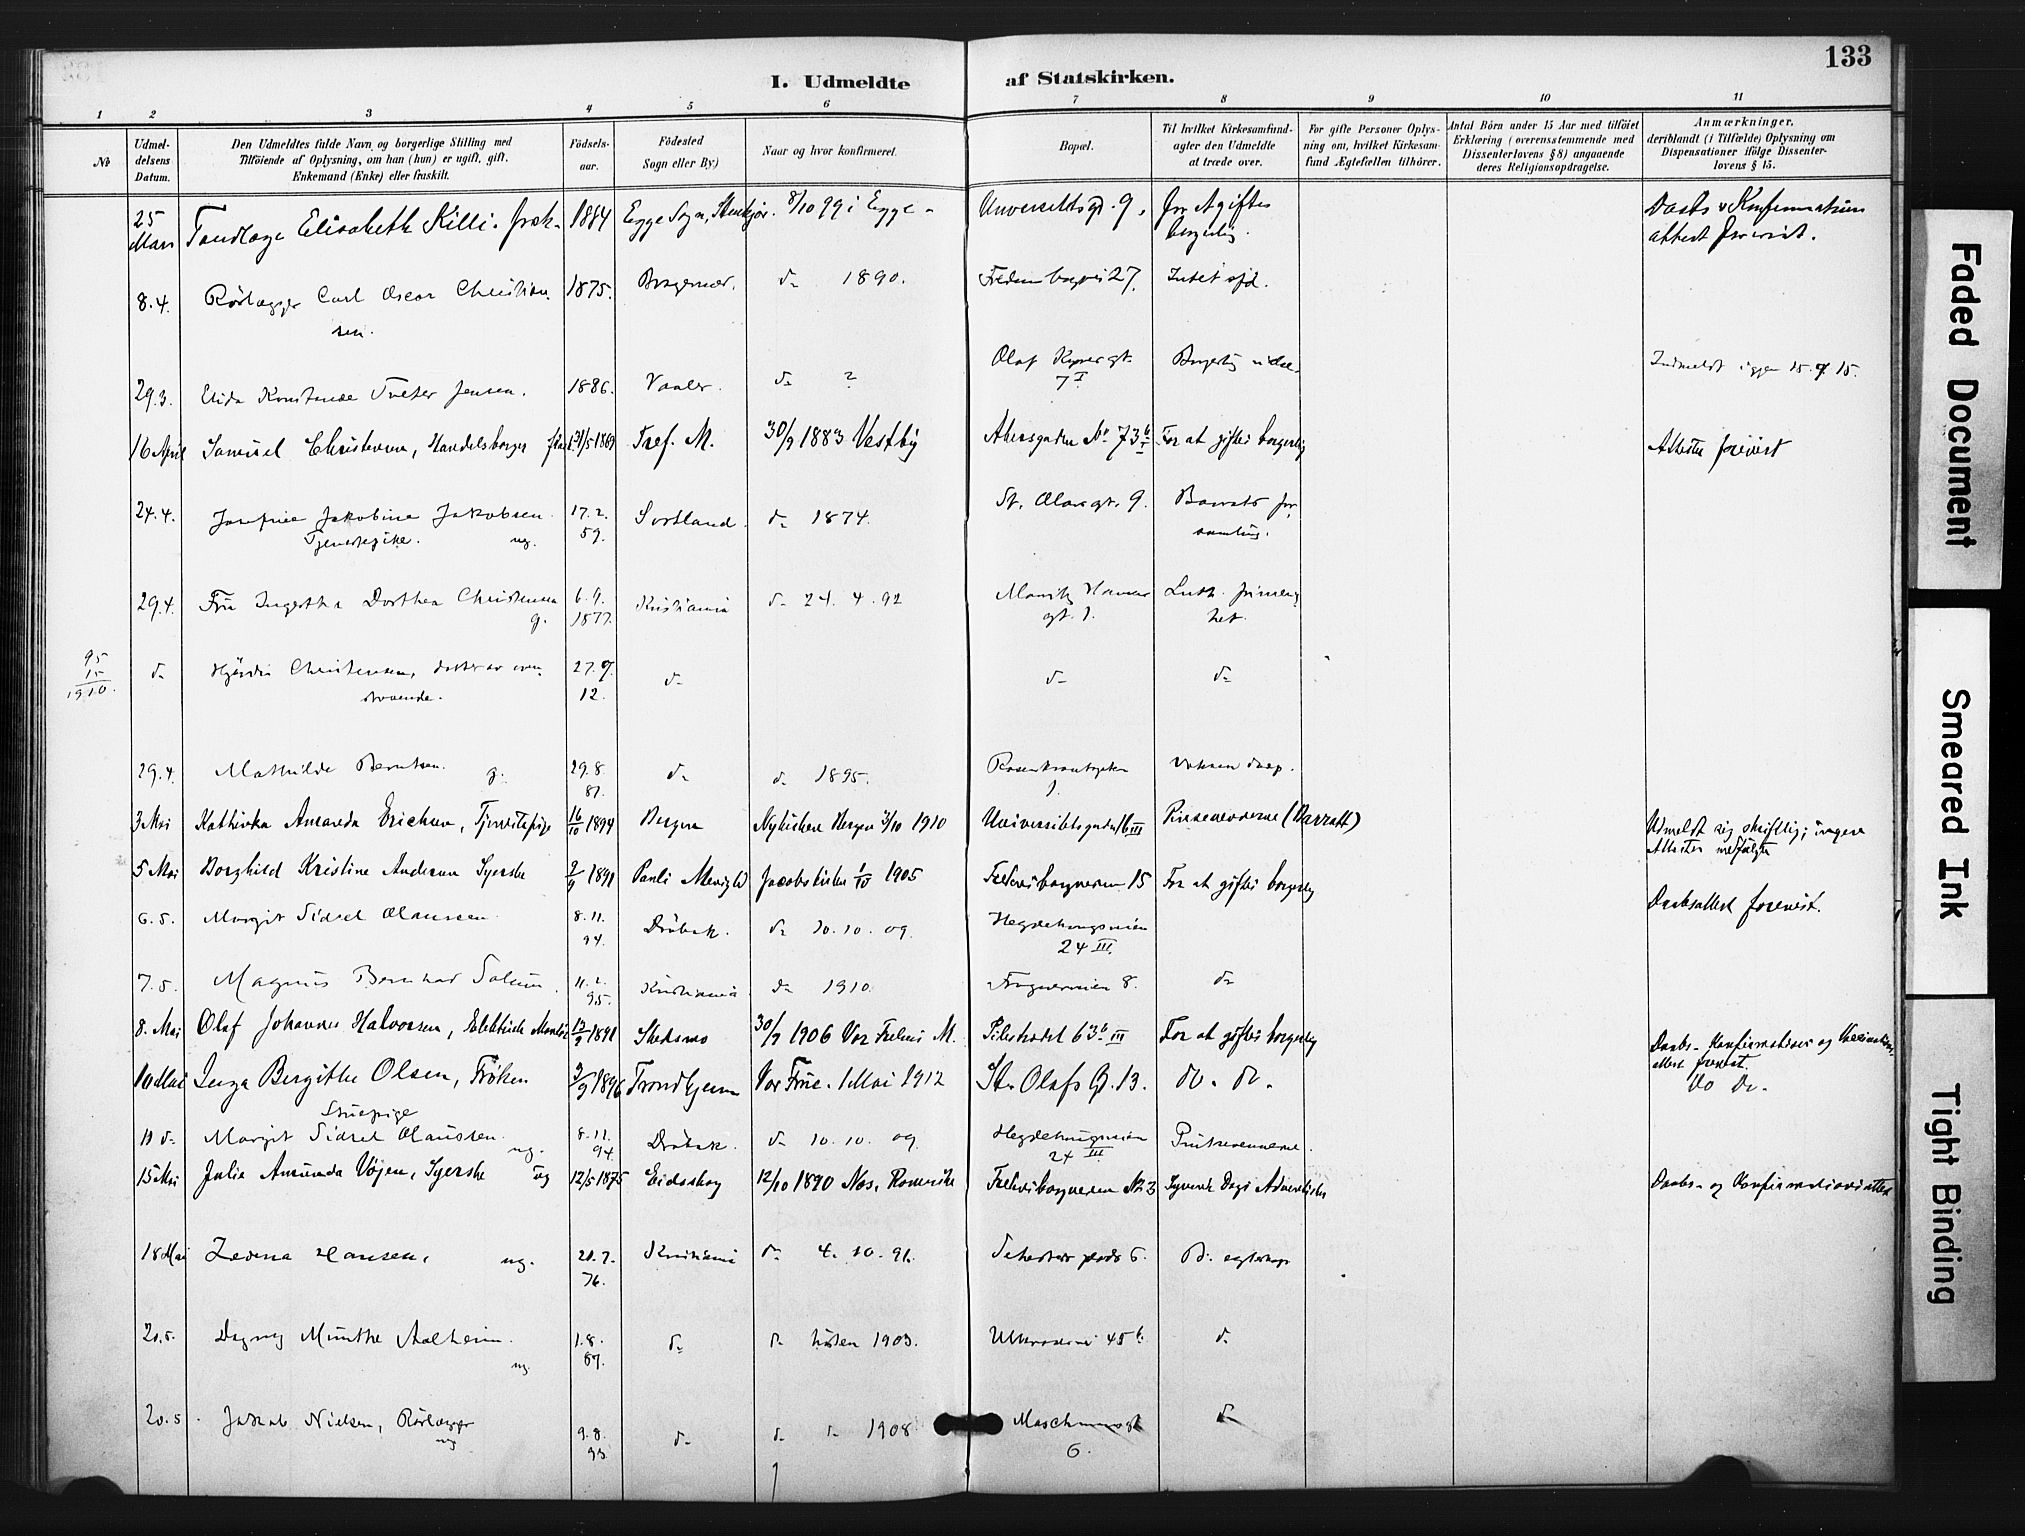 133
I. Udmeldte af Statskirken.
1 2 3 4 5 6 7 8 9 10 11
No
Udmeldelsens Datum.
Den Udmeldtes fulde Navn og borgerlige Stilling med
Tilföiende af Oplysning, om han (hun) er ugift, gift.
Enkemand (Enke) eller fraskilt.
Födsels-
aar.
Födested
Sogn eller By)
Naar og hvor konfirmeret.
Bopæl.
Til hvilket Kirkesamfund-
agter den Udmeldte
at træde over.
For gifte Personer Oplys-
ning om, hvilket Kirkesam-
fund Ægtefællen tilhörer.
Antal Börn under 15 Aar med tilföiet
Erklæring (overensstemmende med
Dissenterlovens § 8) angaaende
deres Religionsopdragelse.
Anmærkninger,
deriblandt (i Tilfælde) Oplysning om
Dispensationer ifölge Dissenter-
lovens § 15.
25 Mars Tandlæge Elisabeth Killi. frøk. 1884 Egge Sogn, Stenkjær. 8/10 99 i Egge Universitetsgd. 9. for at giftes borgerlig. Daabs & Konfirmations attest forevist.
8.4. Rørlægger Carl Oscar Christiansen. 1875. Bragernes. d. 1890. 27. Intet opl.
29.3. Konstanse Tveter Jensen. 1886. Vaaler. d. ? Olaf gt. 7 I Borgerlig Indmeldt igjen 15. 15.
16 April Samuel Christensen, Handelsborger 31/5 1869 M. 30/9 1883 Vestby Akersgaden No 73 b I For at giftes borgerlig Attester forevist
24.4. Josefine Jakobine Jakobsen Tjenestepike. ug. 17.2. 59. Sortland. d. 1874. St. Olavsgt. 9. Barratts forsamling.
29.4. Fru Dorthea Christensen g. 6.9. 1877. Kristiania d. 24.4.92 gt. 1. Luth. frimenighet.
95 15 1910. d. Christensen, datter av ovenstaaende. 27. 12. d. d. d.
29.4. Mathilde Berntsen. g. 29.8. 81. d. d. 1895. Rosenkrantzgaten 1. voksen daap.
3 Mai Kathinka Amanda Erichsen, Tjenestepige 16/10 1894 Bergen Nykirken Bergen 2/10 1910 Universitetsgaden 16 III Pinsevennerne (Barratt) Udmeldt sig skriftlig; ingen Attester medfulgte
5 Mai Borghild Kristine Andersen Syerske 2/9 1891 Pauli Menighed Jacobskirken 1/10 1905 Fredensborgveien 15 For at giftes borgerlig Daabsattest forevist.
6.5. Margit Sidsel Olaussen. 8.11. 94. Drøbak. d. 10.10. 09. Hegdehaugsveien 24 III.
7.5. Magnus Bernhard Solum. 11.2. 95. Kristiania d. 1910. Frognerveien 8. d.
8. Mai Olaf Johannes Halvorsen, Elektrisk 1891 Skedsmo 30/9 1906 Vor Frelsers M. Pilestrædet 63 b III For at giftes borgerlig Daabs- Konfirmations og Vaccinations attest forevist.
10 Mai Inga Bergitte Olsen, Frøken 3/9 1896 Trondhjem Vor Frue. 1 Mai 1912 St. Olafs G. 13. do. do. do do.
11 d. Stuepige Margit Sidsel Olaussen. ug. 8.11. 94. Drøbak. d. 10.10. 09. Hegdehaugsveien 24 III. Pinsevennerne.
15 Mai Julie Amunda Vøjen, Syerske ug 12/5 1875 Eidskog 12/10 1890 Nes, Romerike Fredensborgveien No 3 Syvende Dags Adventister Daabs- og Konfirmationsattest
18 Mai Hansen, ug. 20.7. 76. Kristiania d. 4.10.91. Sehesteds plads 6. B. egteskap
20.5. Dagny Münthe Aalheim. ug. 1.8. 87. d. d. høsten 1903. Ullevaalsvei 45 b. d.
20.5. Jakob Nielsen, Rørlægger ug 9.8. 93 d. d. d. 1908. 6. d.
Faded Document
Smeared Ink
Tight Binding